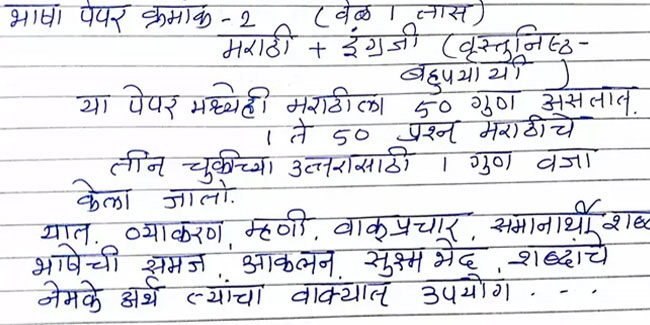 भाषा पेपर क्रमांक - २ (वेळ १ तास)
मराठी + इंग्रजी (वस्तुनिष्ठ-
बहुपर्यायी)
या पेपर मध्येही मराठीला ५० गुण असतात.
१ ते ५० प्रश्न मराठीचे
तीन चुकीच्या उत्तरासाठी १ गुण वजा
केला जातो.
यात. व्याकरण, म्हणी, वाक्प्रचार, समानार्थी शब्द
भाषेची समज, आकलन, सुक्ष्म भेद, शब्दाचे
नेमके अर्थ त्यांचा वाक्यात उपयोग . . .